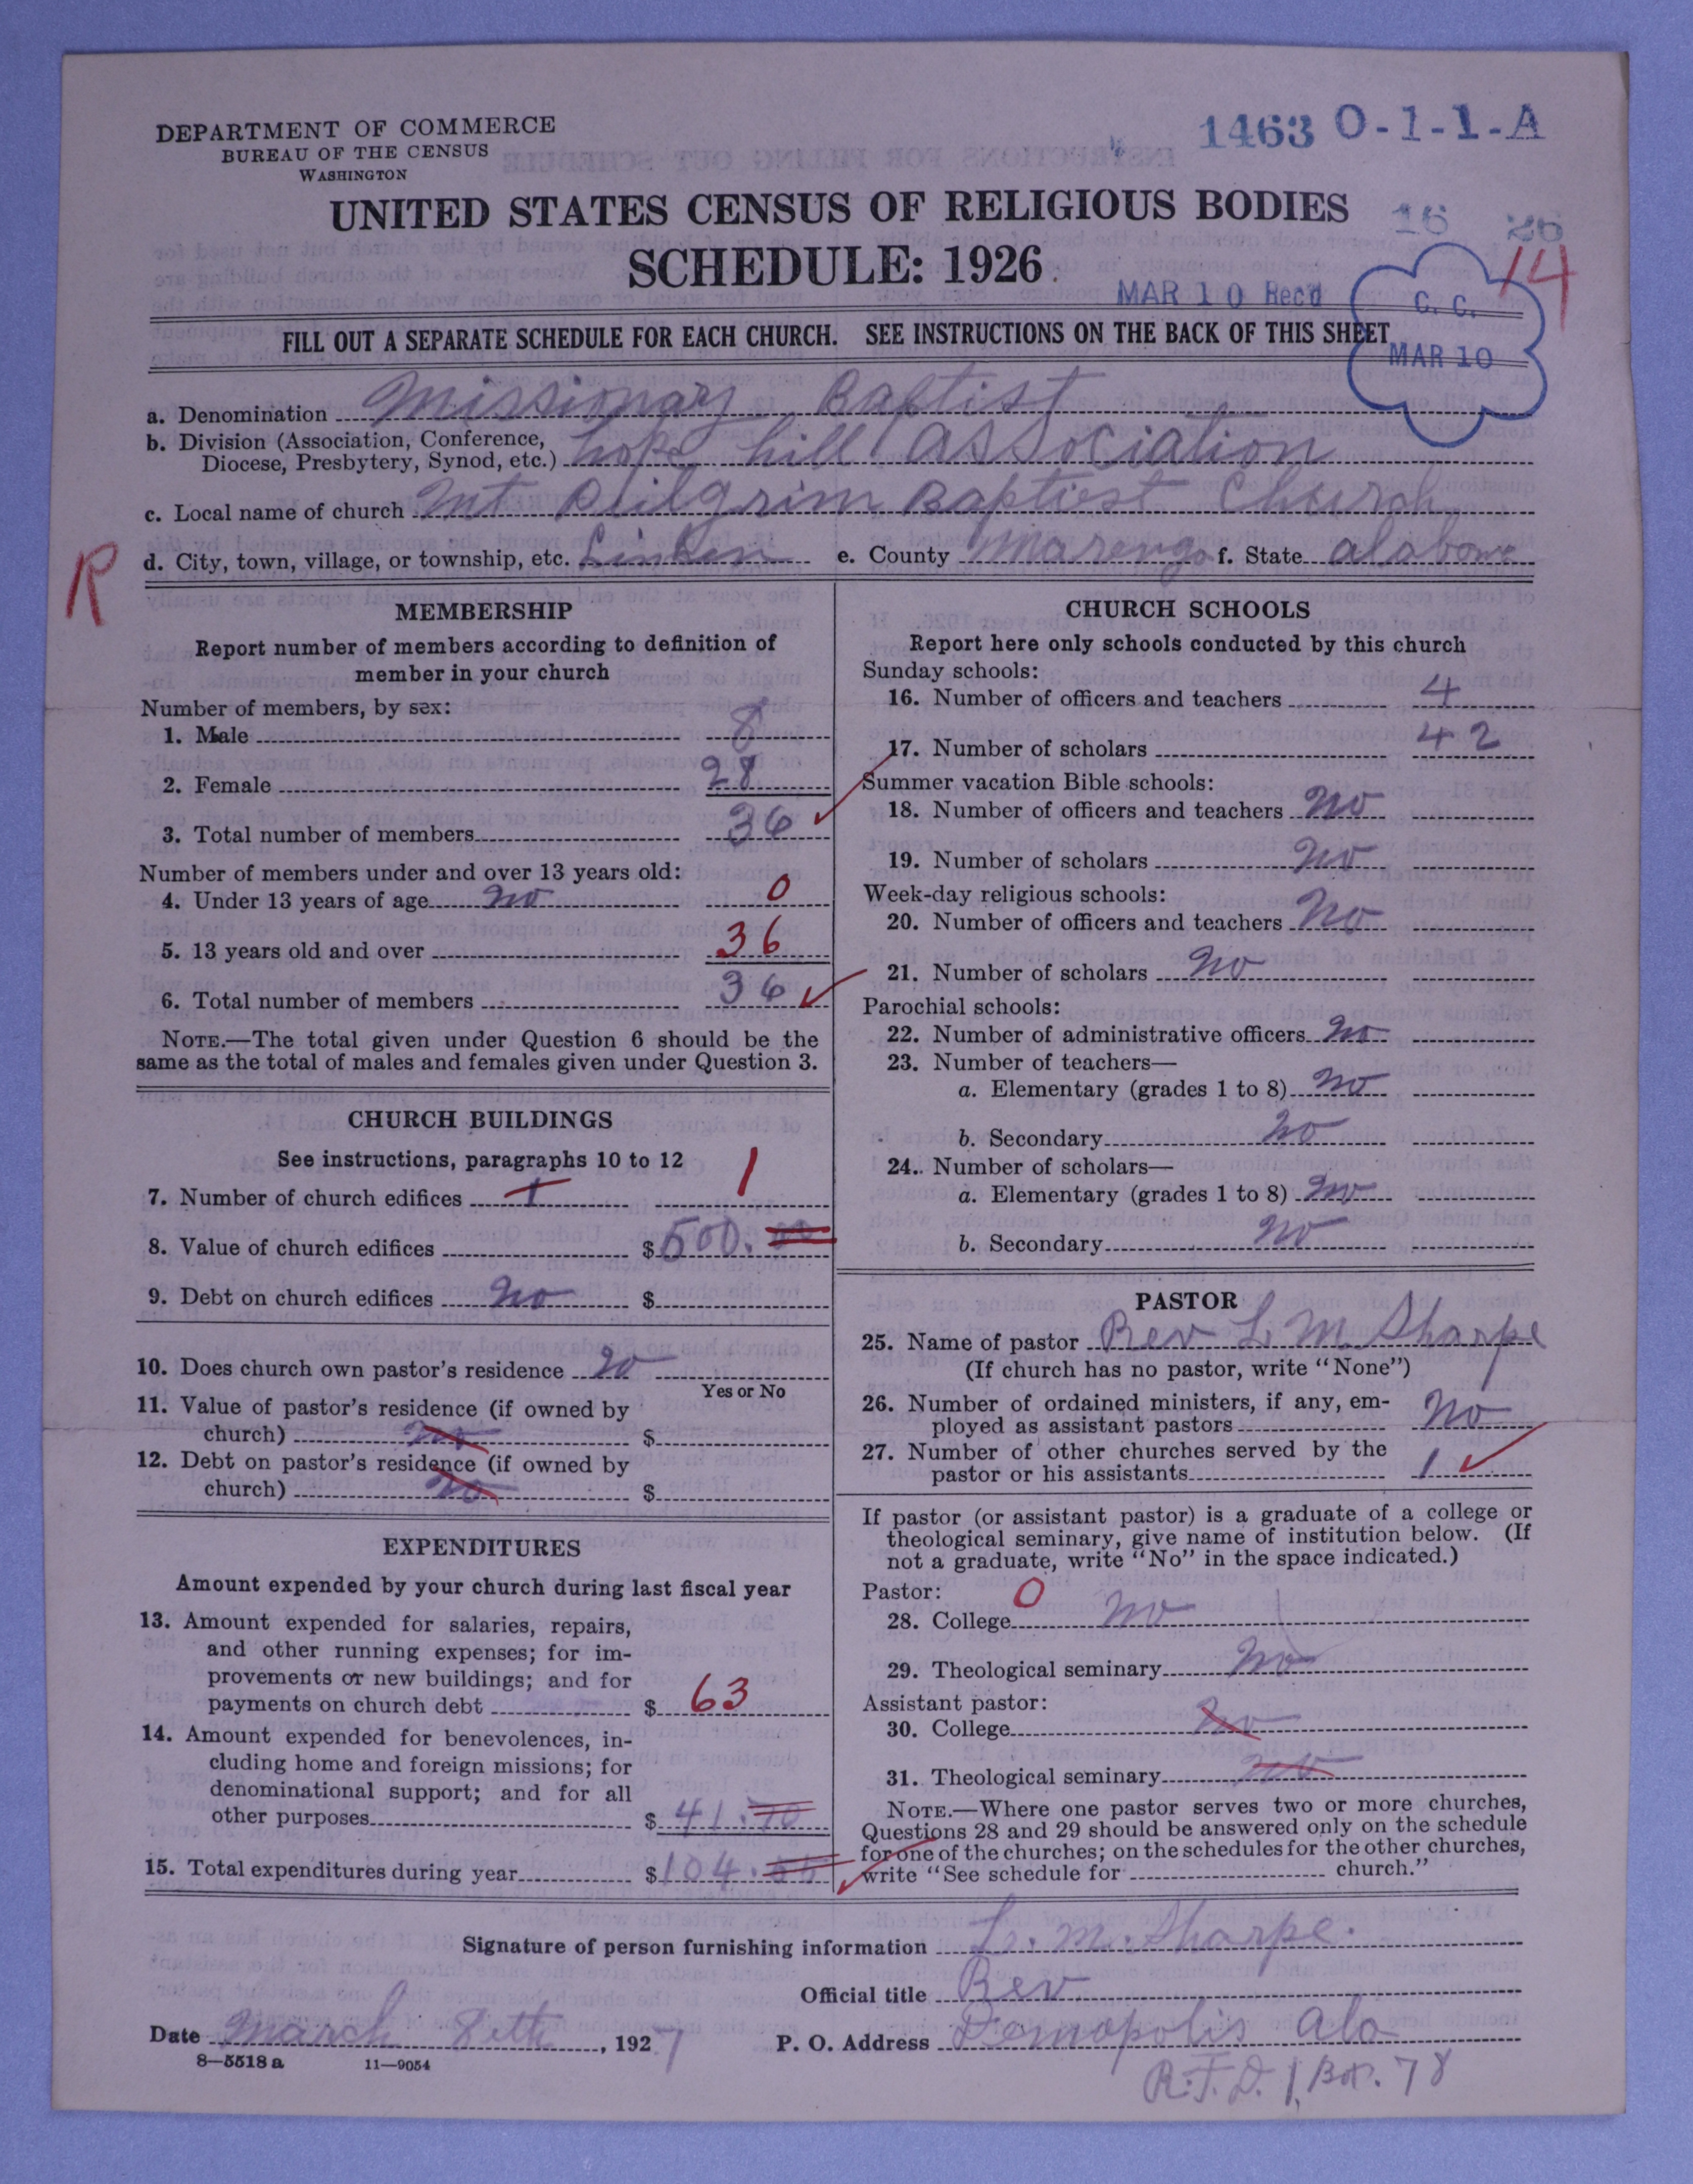 DEPARTMENT OF COMMERCE
BUREAU OF THE CENSUS
WASHINGTON
1463 O-1-1-A
UNITED STATES CENSUS OF RELIGIOUS BODIES
16 26
SCHEDULE: 1926
14
MAR 10 Rec'd
C. C.
MAR 10
FILL OUT A SEPARATE SCHEDULE FOR EACH CHURCH. SEE INSTRUCTIONS ON THE BACK OF THIS SHEET
a. Denomination Missionary Baptist
b. Division (Association, Conference,
Diocese, Presbytery, Synod, etc.) hope hill association
c. Local name of church Mt Pilgrim Baptist Church
R
d. City, town, village, or township, etc. Linden e. County Marengo f. State alabama
MEMBERSHIP
Report number of members according to definition of
member in your church
Number of members, by sex:
1. Male 8
2. Female 28
3. Total number of members 36
Number of members under and over 13 years old:
4. Under 13 years of age no 0
5. 13 years old and over 36
6. Total number of members 36
NOTE.—The total given under Question 6 should be the
same as the total of males and females given under Question 3.
CHURCH BUILDINGS
See instructions, paragraphs 10 to 12
7. Number of church edifices 1 1
8. Value of church edifices $ 500.00
9. Debt on church edifices no $
10. Does church own pastor's residence no
Yes or No
11. Value of pastor's residence (if owned by
church) no $
12. Debt on pastor's residence (if owned by
church) no $
EXPENDITURES
Amount expended by your church during last fiscal year
13. Amount expended for salaries, repairs,
and other running expenses; for im-
provements or new buildings; and for
payments on church debt $ 63
14. Amount expended for benevolences, in-
cluding home and foreign missions; for
denominational support; and for all
other purposes $ 41.70
15. Total expenditures during year $ 104.
CHURCH SCHOOLS
Report here only schools conducted by this church
Sunday schools:
16. Number of officers and teachers 4
17. Number of scholars 42
Summer vacation Bible schools:
18. Number of officers and teachers no
19. Number of scholars no
Week-day religious schools:
20. Number of officers and teachers no
21. Number of scholars no
Parochial schools:
22. Number of administrative officers no
23. Number of teachers—
a. Elementary (grades 1 to 8) no
b. Secondary no
24. Number of scholars—
a. Elementary (grades 1 to 8) no
b. Secondary no
PASTOR
25. Name of pastor Rev L. M. Sharpe
(If church has no pastor, write "None")
26. Number of ordained ministers, if any, em-
ployed as assistant pastors no
27. Number of other churches served by the
pastor or his assistants 1
If pastor (or assistant pastor) is a graduate of a college or
theological seminary, give name of institution below. (If
not a graduate, write "No" in the space indicated.)
Pastor: 0
28. College no
29. Theological seminary no
Assistant pastor:
30. College no
31. Theological seminary no
NOTE.—Where one pastor serves two or more churches,
Questions 28 and 29 should be answered only on the schedule
for one of the churches; on the schedules for the other churches,
write "See schedule for church."
Signature of person furnishing information L. M. Sharpe.
Official title Rev.
Date March 8th, 1927 P. O. Address Demopolis Ala
8—5518 a 11—9054
R.F.D. 1, Box. 78